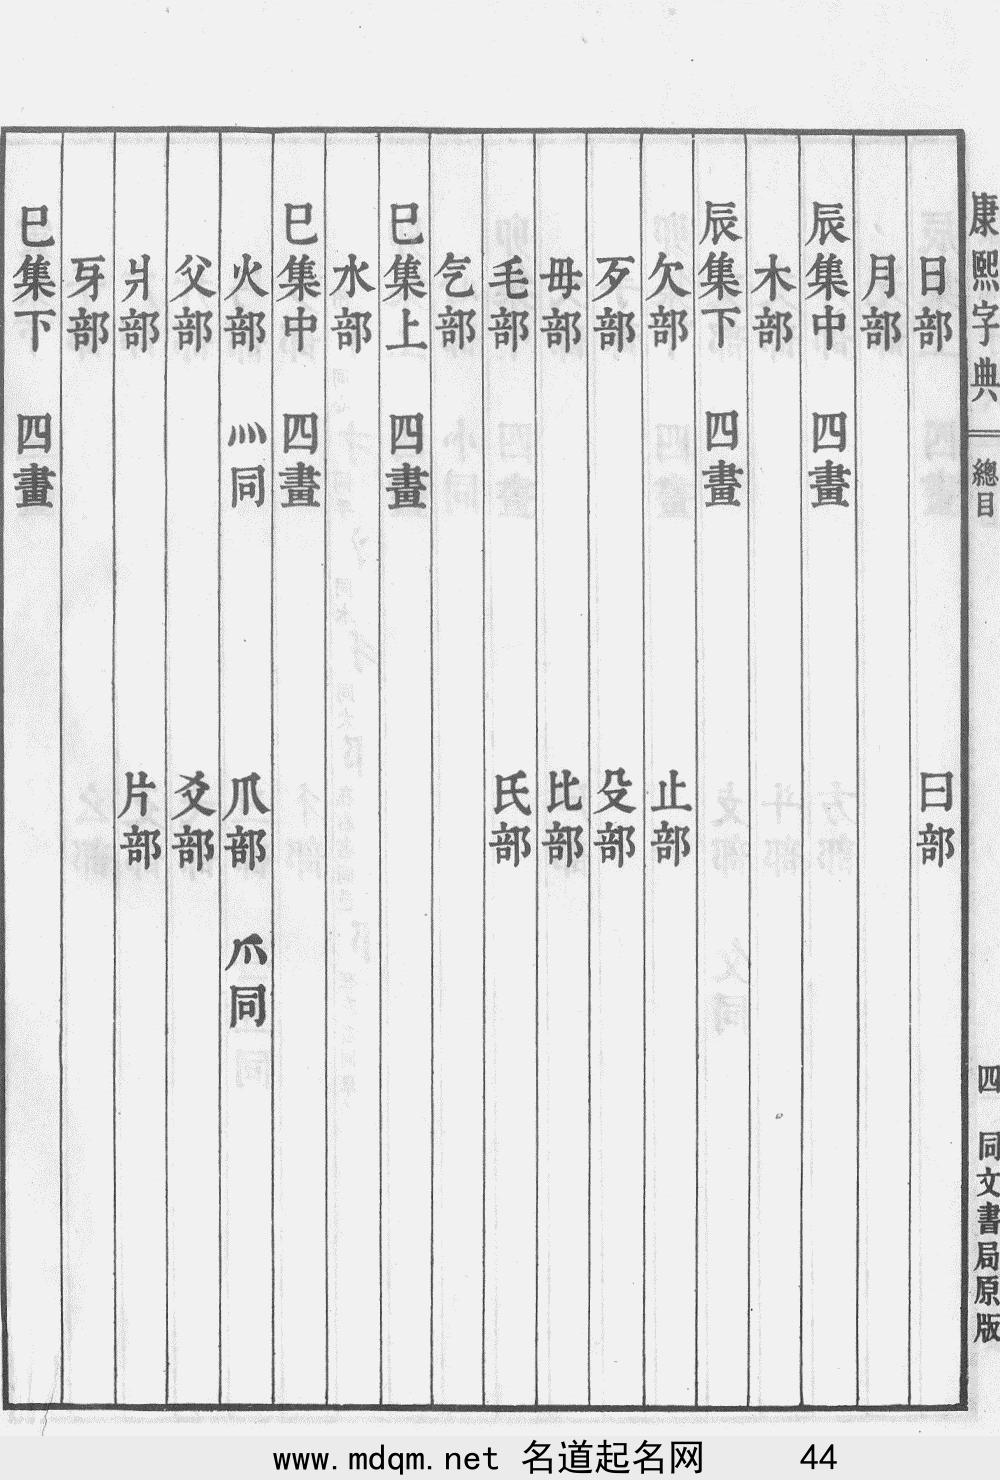 康熙字典 總目 四 同文書局原版
日部 曰部
月部
辰集中 四畫
木部
辰集下 四畫
欠部 止部
歹部 殳部
毋部 比部
毛部 氏部
气部
巳集上 四畫
水部
巳集中 四畫
火部 灬同 爪部 爫同
父部 爻部
爿部 片部
牙部
巳集下 四畫
www.mdqm.net 名道起名网 44